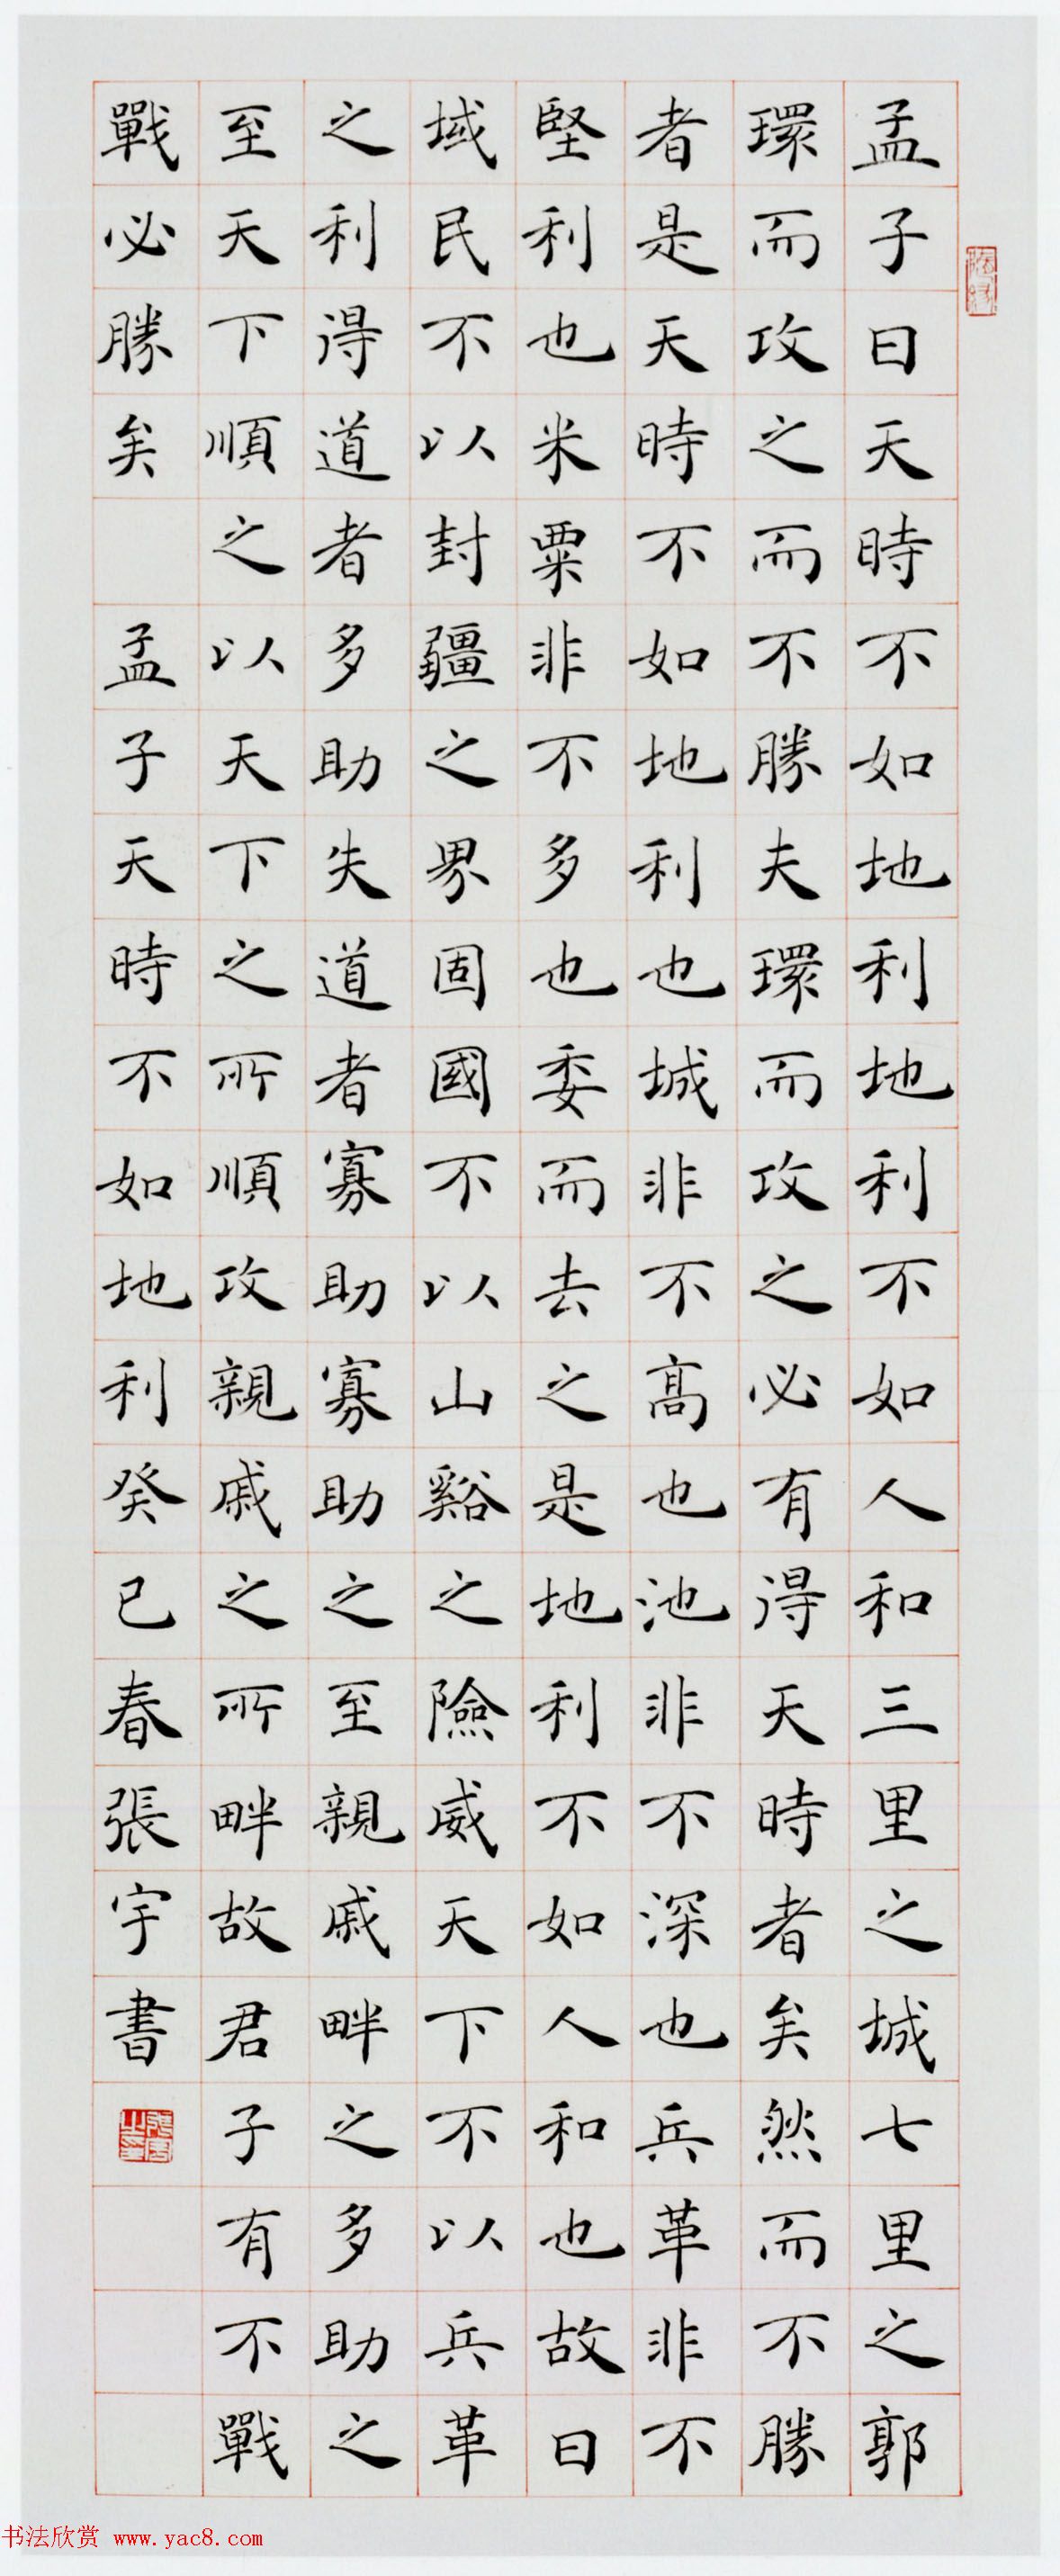 孟子曰天時不如地利地利不如人和三里之城七里之郭
環而攻之而不勝夫環而攻之必有得天時者矣然而不勝
者是天時不如地利也城非不高也池非不深也兵革非不
堅利也米粟非不多也委而去之是地利不如人和也故曰
域民不以封疆之界固國不以山谿之險威天下不以兵革
之利得道者多助失道者寡助寡助之至親戚畔之多助之
至天下順之以天下之所順攻親戚之所畔故君子有不戰
戰必勝矣 孟子天時不如地利癸巳春張宇書
书法欣赏 www.yac8.com